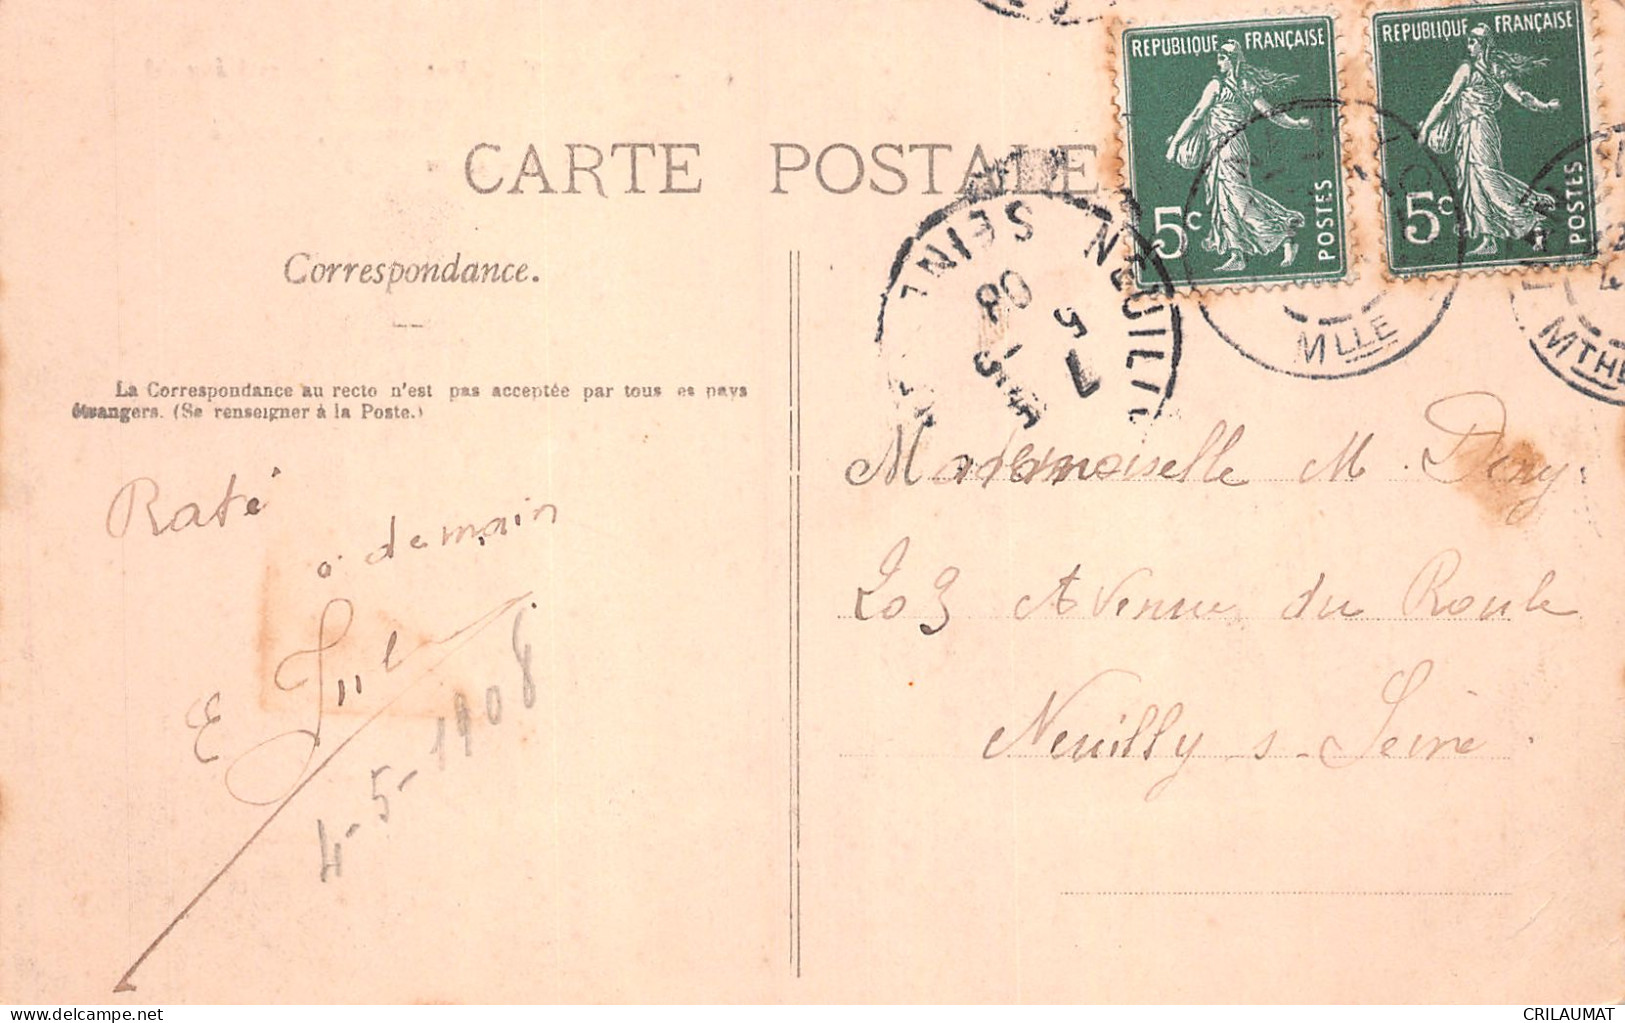 REPUBLIQUE FRANÇAISE
5c POSTES
REPUBLIQUE FRANÇAISE
5c POSTES
CARTE POSTALE
Correspondance.
La Correspondance au recto n'est pas acceptée par tous es pays
étrangers. (Se renseigner à la Poste.)
SEINE
7 5
08
MLLE
MTHE
Raté
a demain
E
4-5-1908
Mademoiselle M.
203 Avenue du Roule
Neuilly s-Seine.
delcampe.net
CRILAUMAT